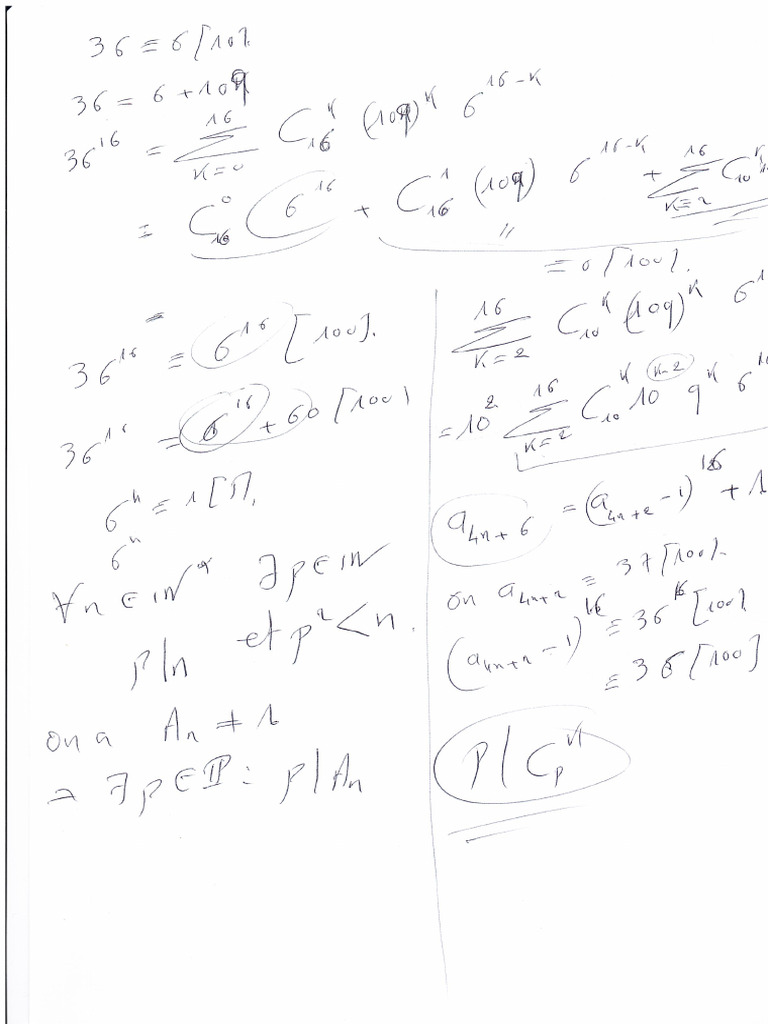 36 ≡ 6 [10].
36 = 6 + 10q
36^16 = Σ_{K=0}^{16} C_16^K (10q)^K 6^{16-K}
= C_16^0 6^16 + C_16^1 (10q) 6^{16-K} + Σ_{K=2}^{16} C_10^K
≡ 0 [100].
36^16 ≡ 6^16 [100].
36^16 ≡ 6^16 + 60 [100]
6^n ≡ 1 [
6^n
∀n ∈ IN* ∃p ∈ IN
p/n et p² < n.
on a An ≠ 1
⇒ ∃p ∈ IP : p/An
Σ_{K=2}^{16} C_10^K (10q)^K 6^1
= 10² Σ_{K=2}^{16} C_10^K 10^{K-2} q^K 6^16
a_{4n+6} = (a_{4n+2} - 1)^16 + 1
on a_{4n+2} ≡ 37 [100].
(a_{4n+2} - 1)^16 ≡ 36^16 [100]
≡ 36 [100]
P / C_p^K